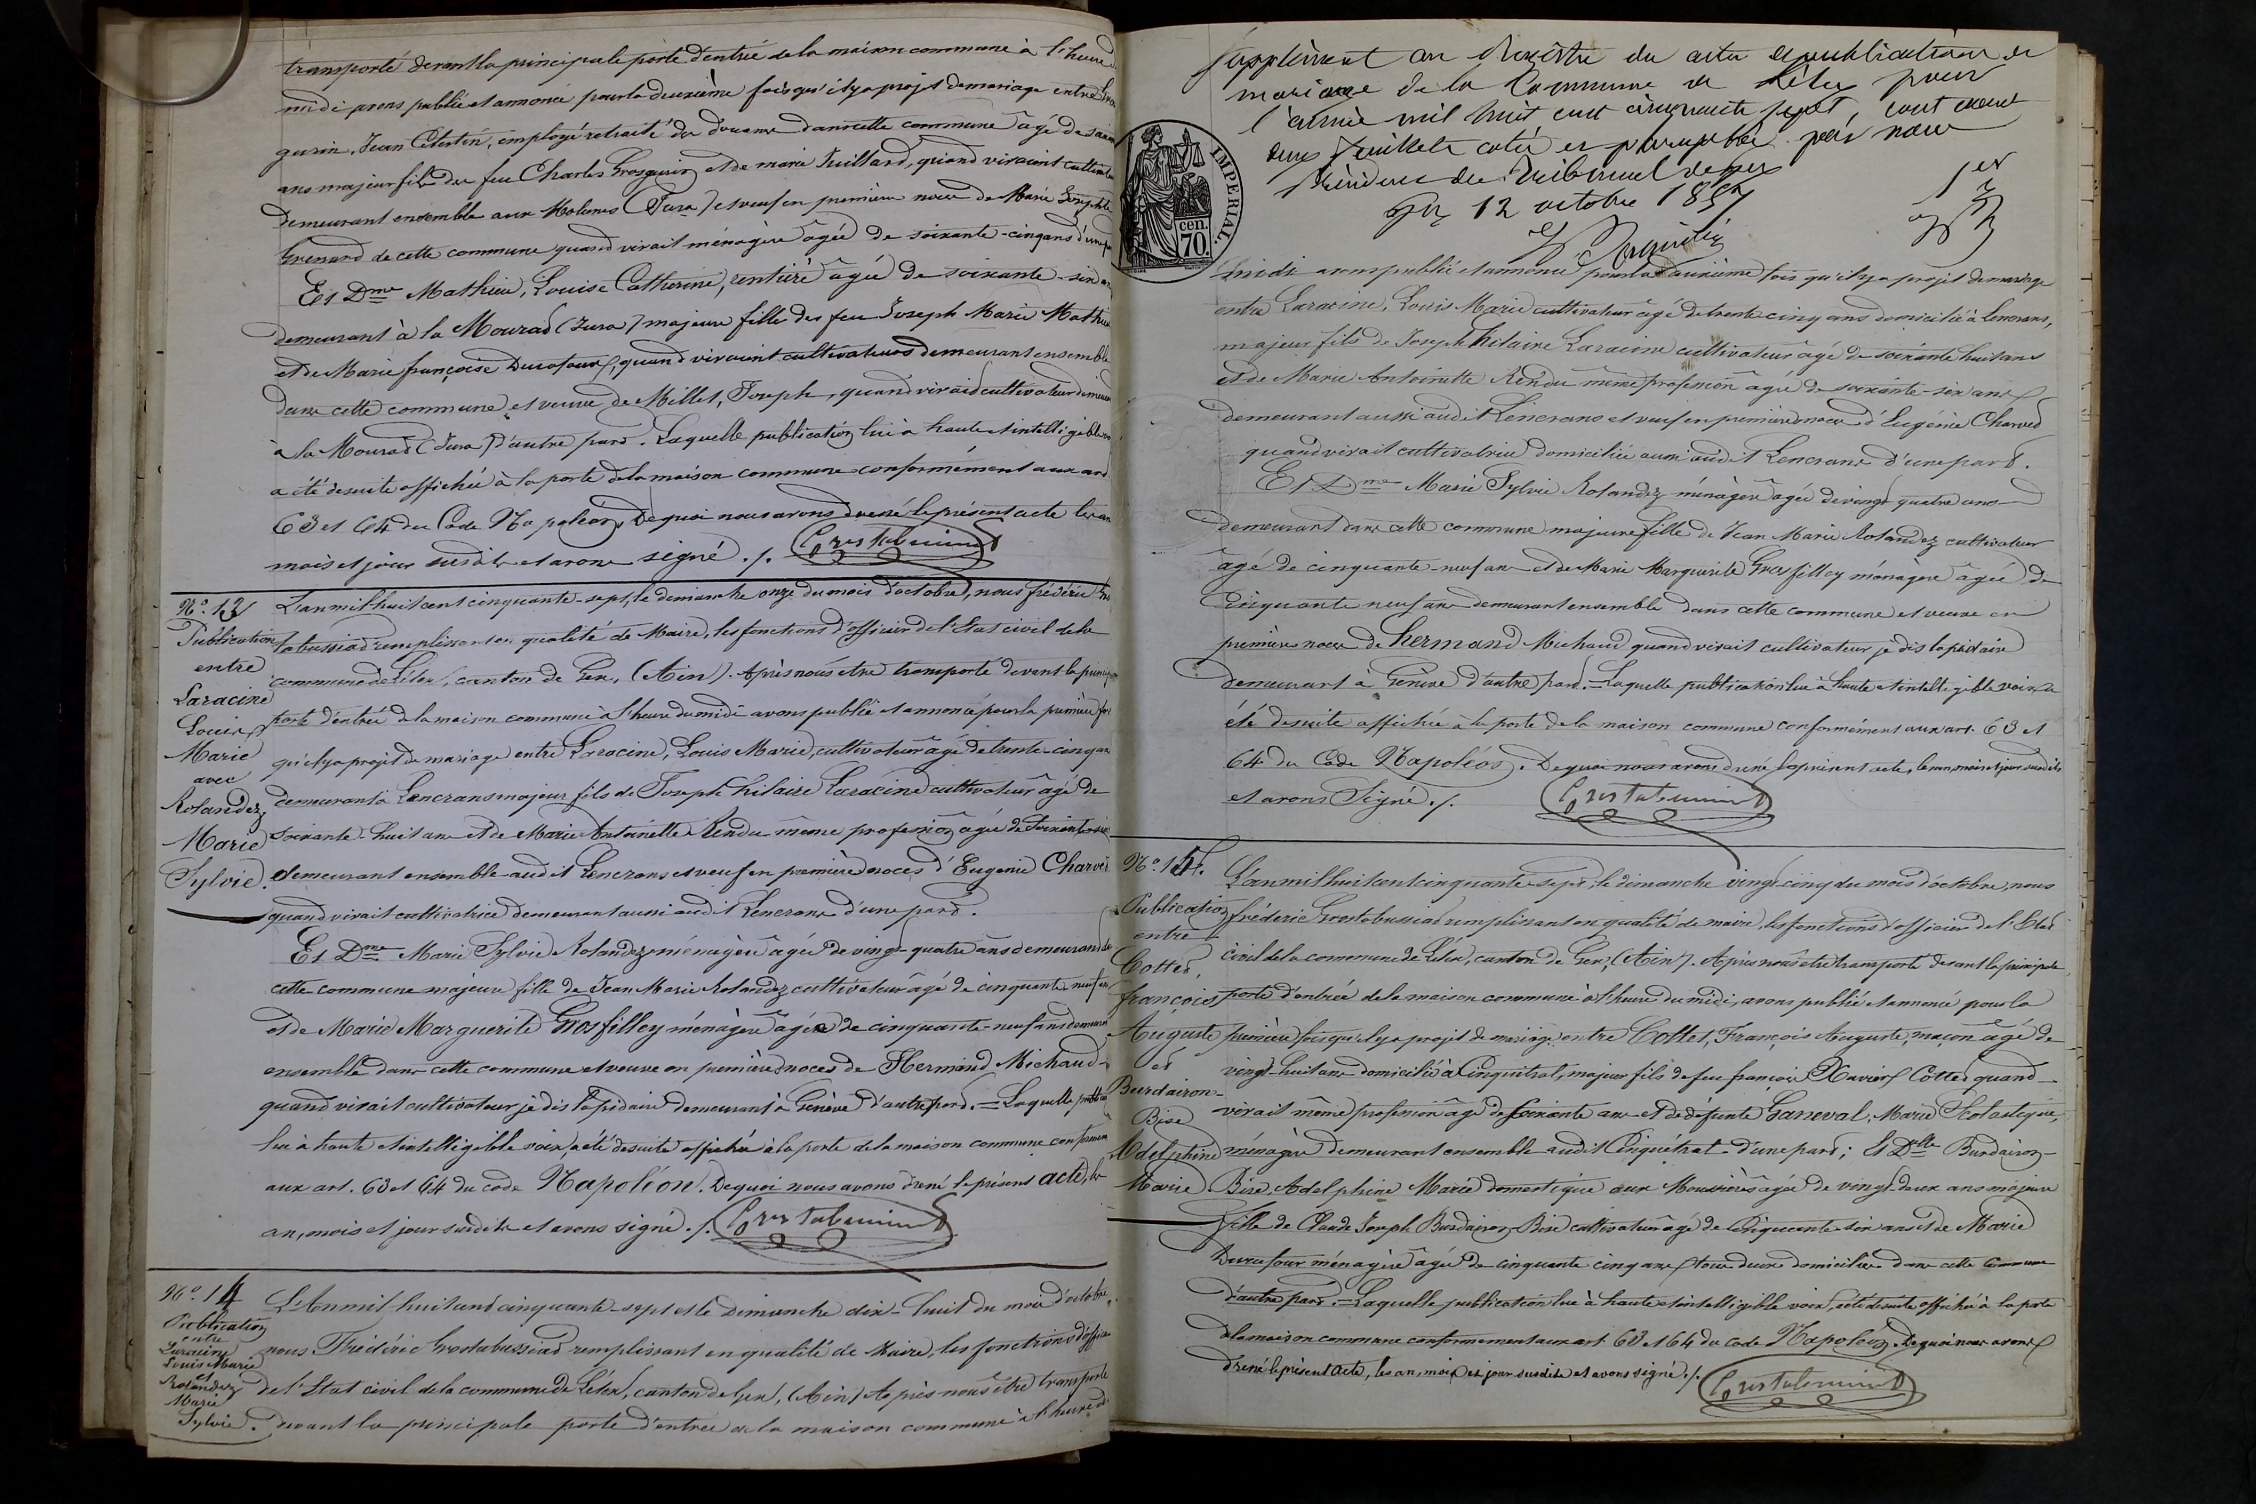 transporté devant la principale porte d'entrée de la maison commune à l'heure de
midi avons publié et annoncé pour la deuxième fois qu'il y a projet de mariage entre Gros
gurin, Jean Célestin, employé retraité des douanes dans cette commune âgé de soixante
ans majeur fils de feu Charles Grosgurin et de marie Juillard, quand vivaient cultivateurs
demeurant ensemble aux Molunes (Jura) et veuf en première noces de Marie Josephte
Grenard de cette commune quand vivait ménagère âgée de soixante-cinq ans d'une part
Et Dme Mathieu, Louise Catherine, rentière âgée de soixante-six ans
demeurant à la Mourad (Jura) majeure fille de feu Joseph Marie Mathieu
et de Marie françoise Ducofour, quand vivaient cultivateurs demeurant ensemble
dans cette commune et veuve de Millet, Joseph, quand vivait cultivateur demeurant
à la Mourad (Jura) d'autre part. Laquelle publication lue à haute et intelligible voix
a été de suite affichée à la porte de la maison commune conformément aux art.
63 et 64 du Code Napoléon. De quoi nous avons dressé le présent acte les an
mois et jour susdits et avons signé ./.
No. 13
Publication
entre
Laracine
Louis
Marie
avec
Rolandez
Marie
Sylvie.
L'an mil huit cent cinquante-sept, le dimanche onze du mois d'octobre, nous frédéric Gros
tabussiat remplissant en qualité de Maire, les fonctions d'officier de l'Etat civil de la
commune de Lélex, canton de Gex, (Ain). Après nous être transporté devant la principale
porte d'entrée de la maison commune à l'heure du midi avons publié et annoncé pour la première fois
qu'il y a projet de mariage entre Laracine, Louis Marie, cultivateur âgé de trente-cinq ans
demeurant à Lencrans majeur fils de Joseph hilaire Laracine cultivateur âgé de
soixante-huit ans et de Marie Antoinette Rendu même profession âgée de soixante-six
demeurant ensemble audit Lencrans et veuf en première noces d'Eugenie Charvet
quand vivait cultivatrice demeurant aussi audit Lencrans d'une part.
Et Dme Marie Sylvie Rolandez ménagère âgée de vingt-quatre ans demeurant de
cette commune majeure fille de Jean Marie Rolandez cultivateur âgé de cinquante-neuf ans
et de Marie Marguerite Grosfilley ménagère âgée de cinquante-neuf ans demeurant
ensemble dans cette commune et veuve en première noces de Hermand Michaud
quand vivait cultivateur je dis lapidaire demeurant à Genève d'autre part. = Laquelle publication
lue à haute et intelligible voix, a été de suite affichée à la porte de la maison commune conformément
aux art. 63 et 64 du code Napoléon. De quoi nous avons dressé le présent acte, les
an, mois et jour susdits et avons signé ./.
No. 14
Publication
entre
Laracine
Louis Marie
et
Rolandez
Marie
Sylvie.
L'An mil huit cent cinquante-sept et le Dimanche dix-huit du mois d'octobre,
nous Frédéric Grostabussiat remplissant en qualité de Maire, les fonctions d'officier
de l'Etat civil de la commune de Lélex, canton de Gex, (Ain) Après nous être transporté
devant la principale porte d'entrée de la maison commune à l'heure de
Supplément au Registre des actes de publications de
mariage de la Commune de Lélex pour
l'année mil huit cent cinquante sept, contenant
deux feuillets cotés et paraphés par nous
Président du Tribunal de Gex
Gex 12 octobre 1857
1er
IMPERIAL.
cen.
70.
midi avons publié et annoncé pour la deuxième fois qu'il y a projet de mariage
entre Laracine, Louis Marie cultivateur âgé de trente-cinq ans domicilié à Lencrans,
majeur fils de Joseph Hilaire Laracine cultivateur âgé de soixante huit ans
et de Marie Antoinette Rendu même profession âgée de soixante-six ans
demeurant aussi audit Lencrans et veuf en première noces d'Eugénie Charvet
quand vivait cultivatrice domiciliée aussi audit Lencrans d'une part.
Et Dme Marie Sylvie Rolandez ménagère âgée de vingt quatre ans
demeurant dans cette commune majeure fille de Jean Marie Rolandez cultivateur
âgé de cinquante-neuf ans et de Marie Marguerite Grosfilley ménagère âgée de
Cinquante neuf ans demeurant ensemble dans cette commune et veuve en
première noces de Hermand Michaud quand vivait cultivateur je dis lapidaire
demeurant à Genève d'autre part. = Laquelle publication lue à haute et intelligible voix, a
été de suite affichée à la porte de la maison commune conformément aux art. 63 et
64 du Code Napoléon. De quoi nous avons dressé le présent acte, les an, mois et jour susdits
et avons Signé ./.
No. 15.
Publication
entre
Cottet,
françois
Auguste
et
Burdairon-
Bise
Adelphine
Marie
L'an mil huit cent cinquante-sept, le dimanche vingt-cinq du mois d'octobre, nous
frédéric Grostabussiat remplissant en qualité de maire, les fonctions d'officier de l'Etat
civil de la commune de Lélex, canton de Gex, (Ain). Après nous être transporté devant la principale
porte d'entrée de la maison commune à l'heure du midi, avons publié et annoncé pour la
première fois qu'il y a projet de mariage entre Cottet, François Auguste, maçon âgé de
vingt-huit ans domicilié à Cinquétral, majeur fils de feu françois Xavier Cottet quand
vivait même profession âgé de soixante ans et de défunte Ganeval, Marie Scolastique,
ménagère demeurant ensemble audit Cinquétral d'une part; Et Delle Burdairon-
Bise, Adelphine Marie domestique aux Moussières âgée de vingt-deux ans majeure
fille de Claude Joseph Burdairon Bise cultivateur âgé de Cinquante six ans et de Marie
Ducrofour ménagère âgée de cinquante cinq ans tous deux domiciliés dans cette Commune
d'autre part. = Laquelle publication lue à haute et intelligible voix, a été de suite affichée à la porte
de la maison commune conformément aux art. 63 et 64 du Code Napoléon. De quoi nous avons
dressé le présent acte, les an, mois et jour susdits et avons signé ./.